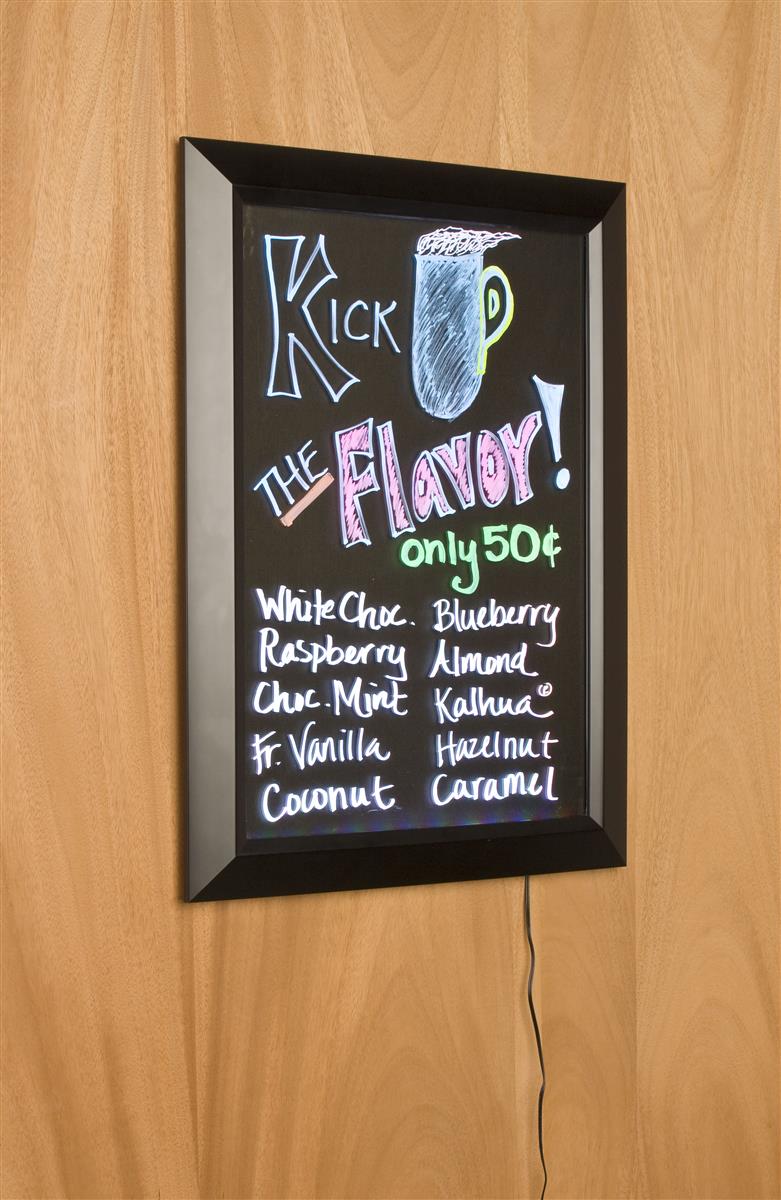 Kick UP
THE Flavor!
only 50¢
White Choc. Blueberry
Raspberry Almond
Choc. Mint Kalhua®
Fr. Vanilla Hazelnut
Coconut Caramel